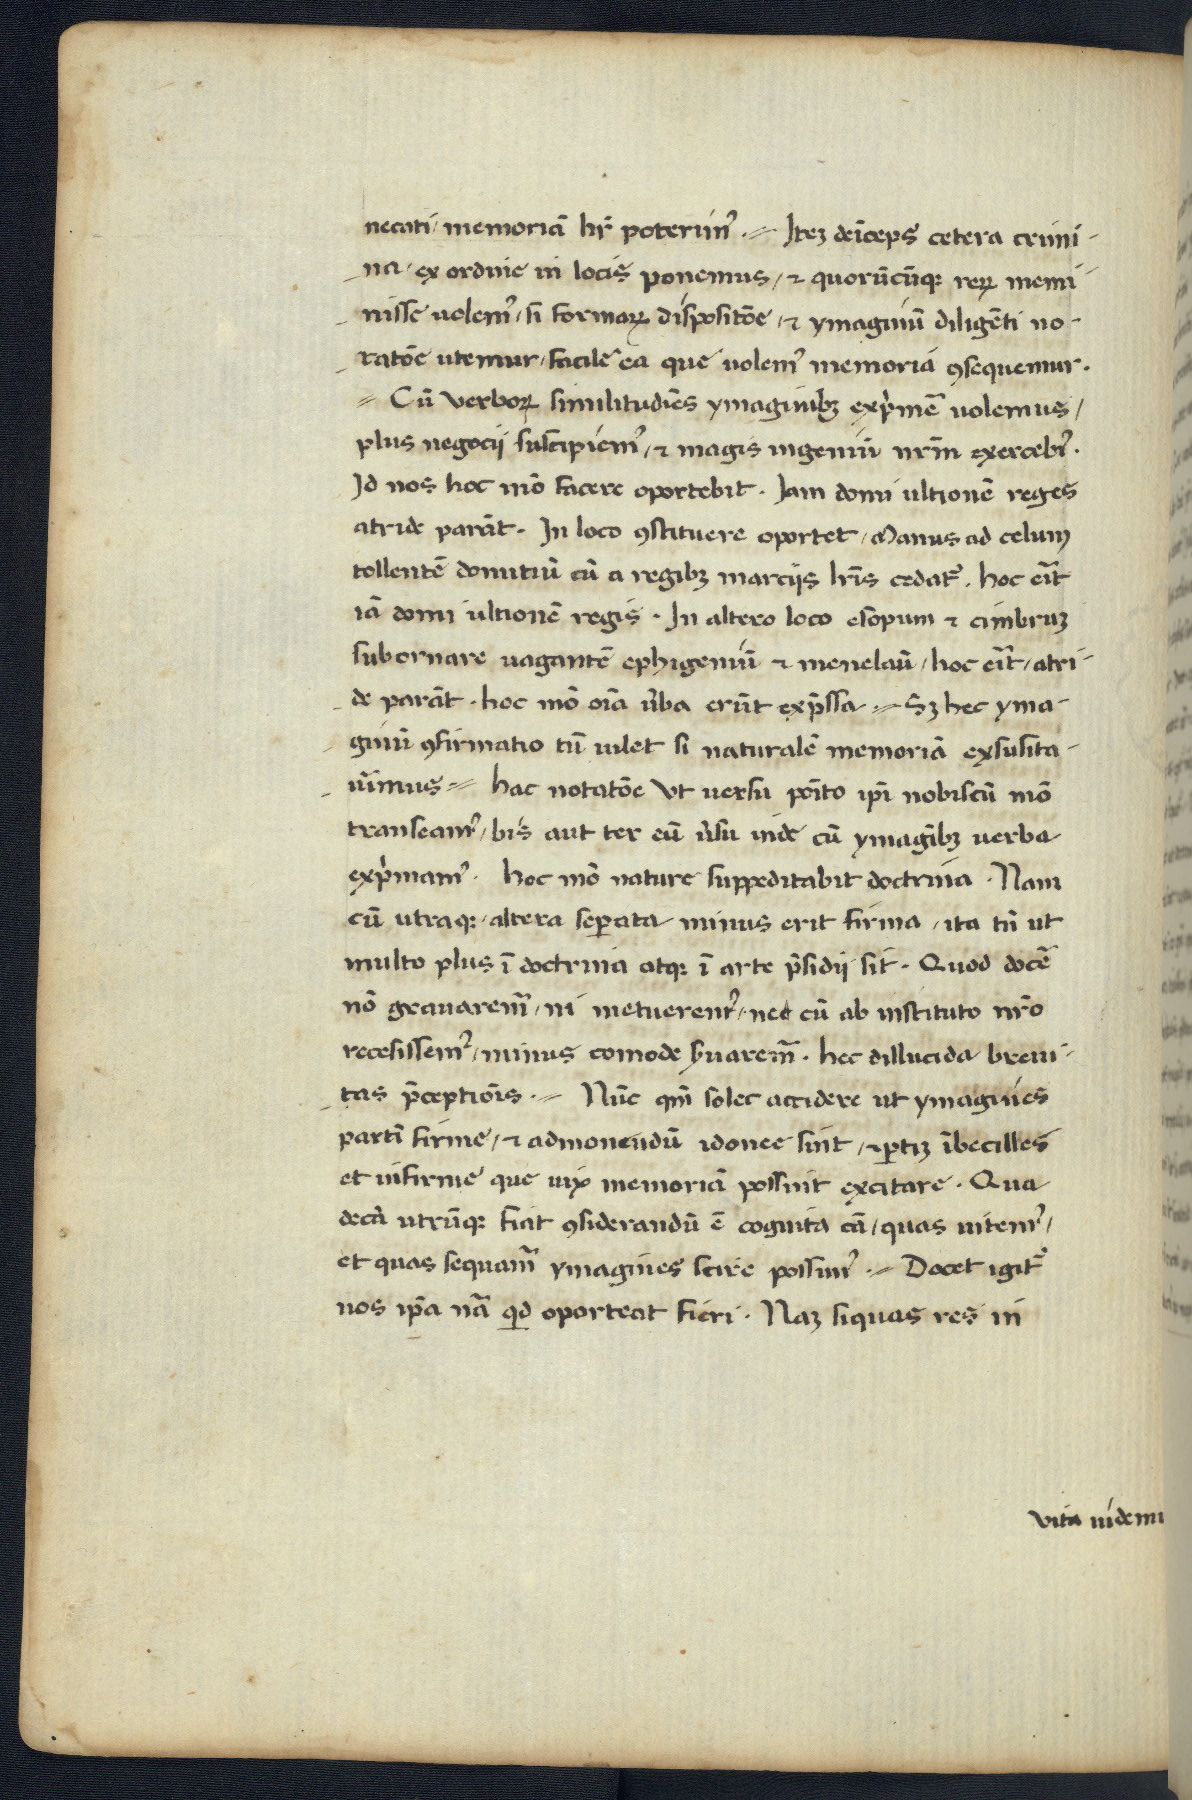 necati / memoriā hr̄e poterim᾽ .⸗ Itez deīceps cetera crimi-
na / ex ordine in locis ponemus / ⁊ quorūcūqꝫ reꝝ memi-
nisse uolem᾽ / si formaꝝ dispositōe / ⁊ ymaginū diligēti no-
tatōe utemur / facile ea que uolem᾽ memoria ꝯsequemur .
⸗ Cū verboꝝ similitudīes ymaginibꝫ exp̄mē uolemus /
plus negocii suscipiem᾽ / ⁊ magis ingeniū nr̄m exercebī᾽ .
Id nos hoc mō facere oportebit . Iam domi ultionē reges
atride parāt . In loco ꝯstituere oportet / Manus ad celum
tollentē domitiū cū a regibꝫ marciis lr̄is cedat᾽ . hoc eīt
iā domi ultionē regis . In altero loco esopum ⁊ cimbruꝫ
subornare uagantē ephigeniū ⁊ menelaū / hoc eīt / atri-
de parāt . hoc mō oīa ūba erūt exp̄ssa ⸗ Sꝫ hec yma-
ginū ꝯfirmatio tū ualet si naturalē memoriā exsusita-
uīmus ⸗ hac notatōe Vt uersu poīto ipī nobiscū mō
transeam᾽ / bis aut ter eū ūsu inde cū ymagībꝫ uerba
exp̄mam᾽ . hoc mō nature suppeditabit doctrina . Nam
cū utraqꝫ / altera seꝑata minus erit firma / ita tn̄ ut
multo plus ī doctrina atqꝫ ī arte p̄sidii sit . Quod docē
nō grauarem᾽ / ni metuerent᾽ / ned cū ab instituto nr̄o
recesissem᾽ / minus comode ꝯuarem᾽ . hec dillucida breui-
tas p̄ceptiōis .⸗ Nūc qm̄ solet accidere ut ymagines
partī firme / ⁊ admonendū idonee sint / ⁊ ꝑtiꝫ ībecilles
et infirme que uix memoriā possint excitare . Qua
decā utrūqꝫ fiat ꝯsiderandū ē cognita cā / quas uitem᾽ /
et quas sequam᾽ ymagines scire possim᾽ .⸗ Docet igit᾽
nos ip̄a nā qd oporteat fieri . Naꝫ siquas res in
vita uidemu